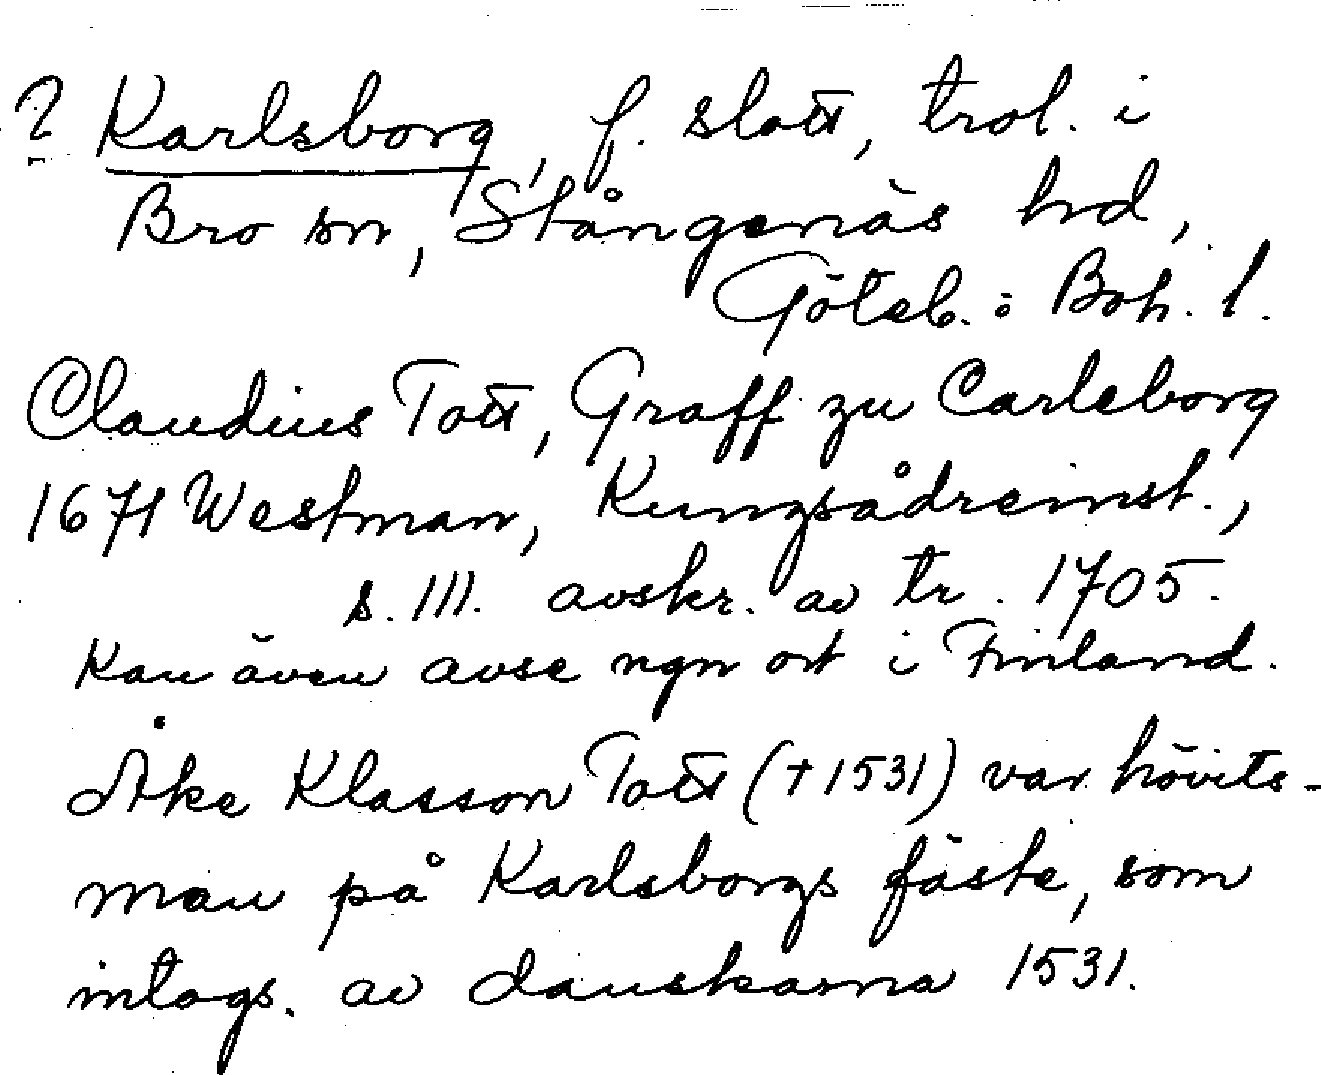 ? Karlsborg, f. slott, trol. i
Bro sn, Stångenäs hrd,
Göteb. o Boh. l.
Claudius Tott, Graff zu Carleborg
1671 Westman, Kungsådreinst.,
s. 111. avskr. av tr. 1705.
Kan även avse ngn ort i Finland.
Åke Klasson Tott († 1531) var hövits-
man på Karlsborgs fäste, som
intogs. av danskarna 1531.